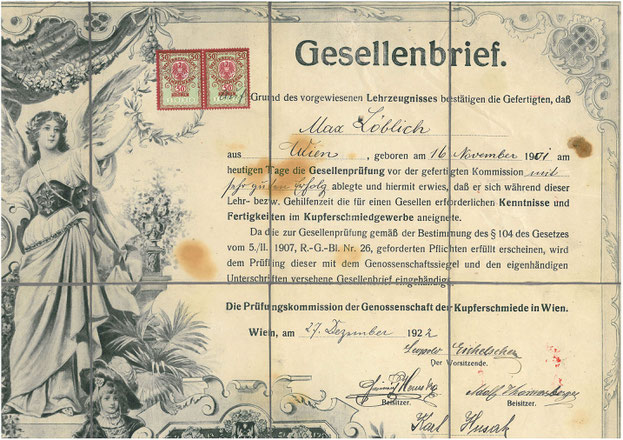 Gesellenbrief.
50 50
Grund des vorgewiesenen Lehrzeugnisses bestätigen die Gefertigten, daß
Max Löblich
aus Wien, geboren am 16 November 1901 am
heutigen Tage die Gesellenprüfung vor der gefertigten Kommission mit
sehr guten Erfolg ablegte und hiermit erwies, daß er sich während dieser
Lehr- bezw. Gehilfenzeit die für einen Gesellen erforderlichen Kenntnisse und
Fertigkeiten im Kupferschmiedgewerbe aneignete.
Da die zur Gesellenprüfung gemäß der Bestimmung des § 104 des Gesetzes
vom 5./II. 1907, R.-G.-Bl. Nr. 26, geforderten Pflichten erfüllt erscheinen, wird
dem Prüfling dieser mit dem Genossenschaftssiegel und den eigenhändigen
Unterschriften versehene Gesellenbrief eingehändigt.
Die Prüfungskommission der Genossenschaft der Kupferschmiede in Wien.
Wien, am 27. Dezember 1922
Leopold
Der Vorsitzende.
Adolf
Beisitzer. Beisitzer.
Karl Husak